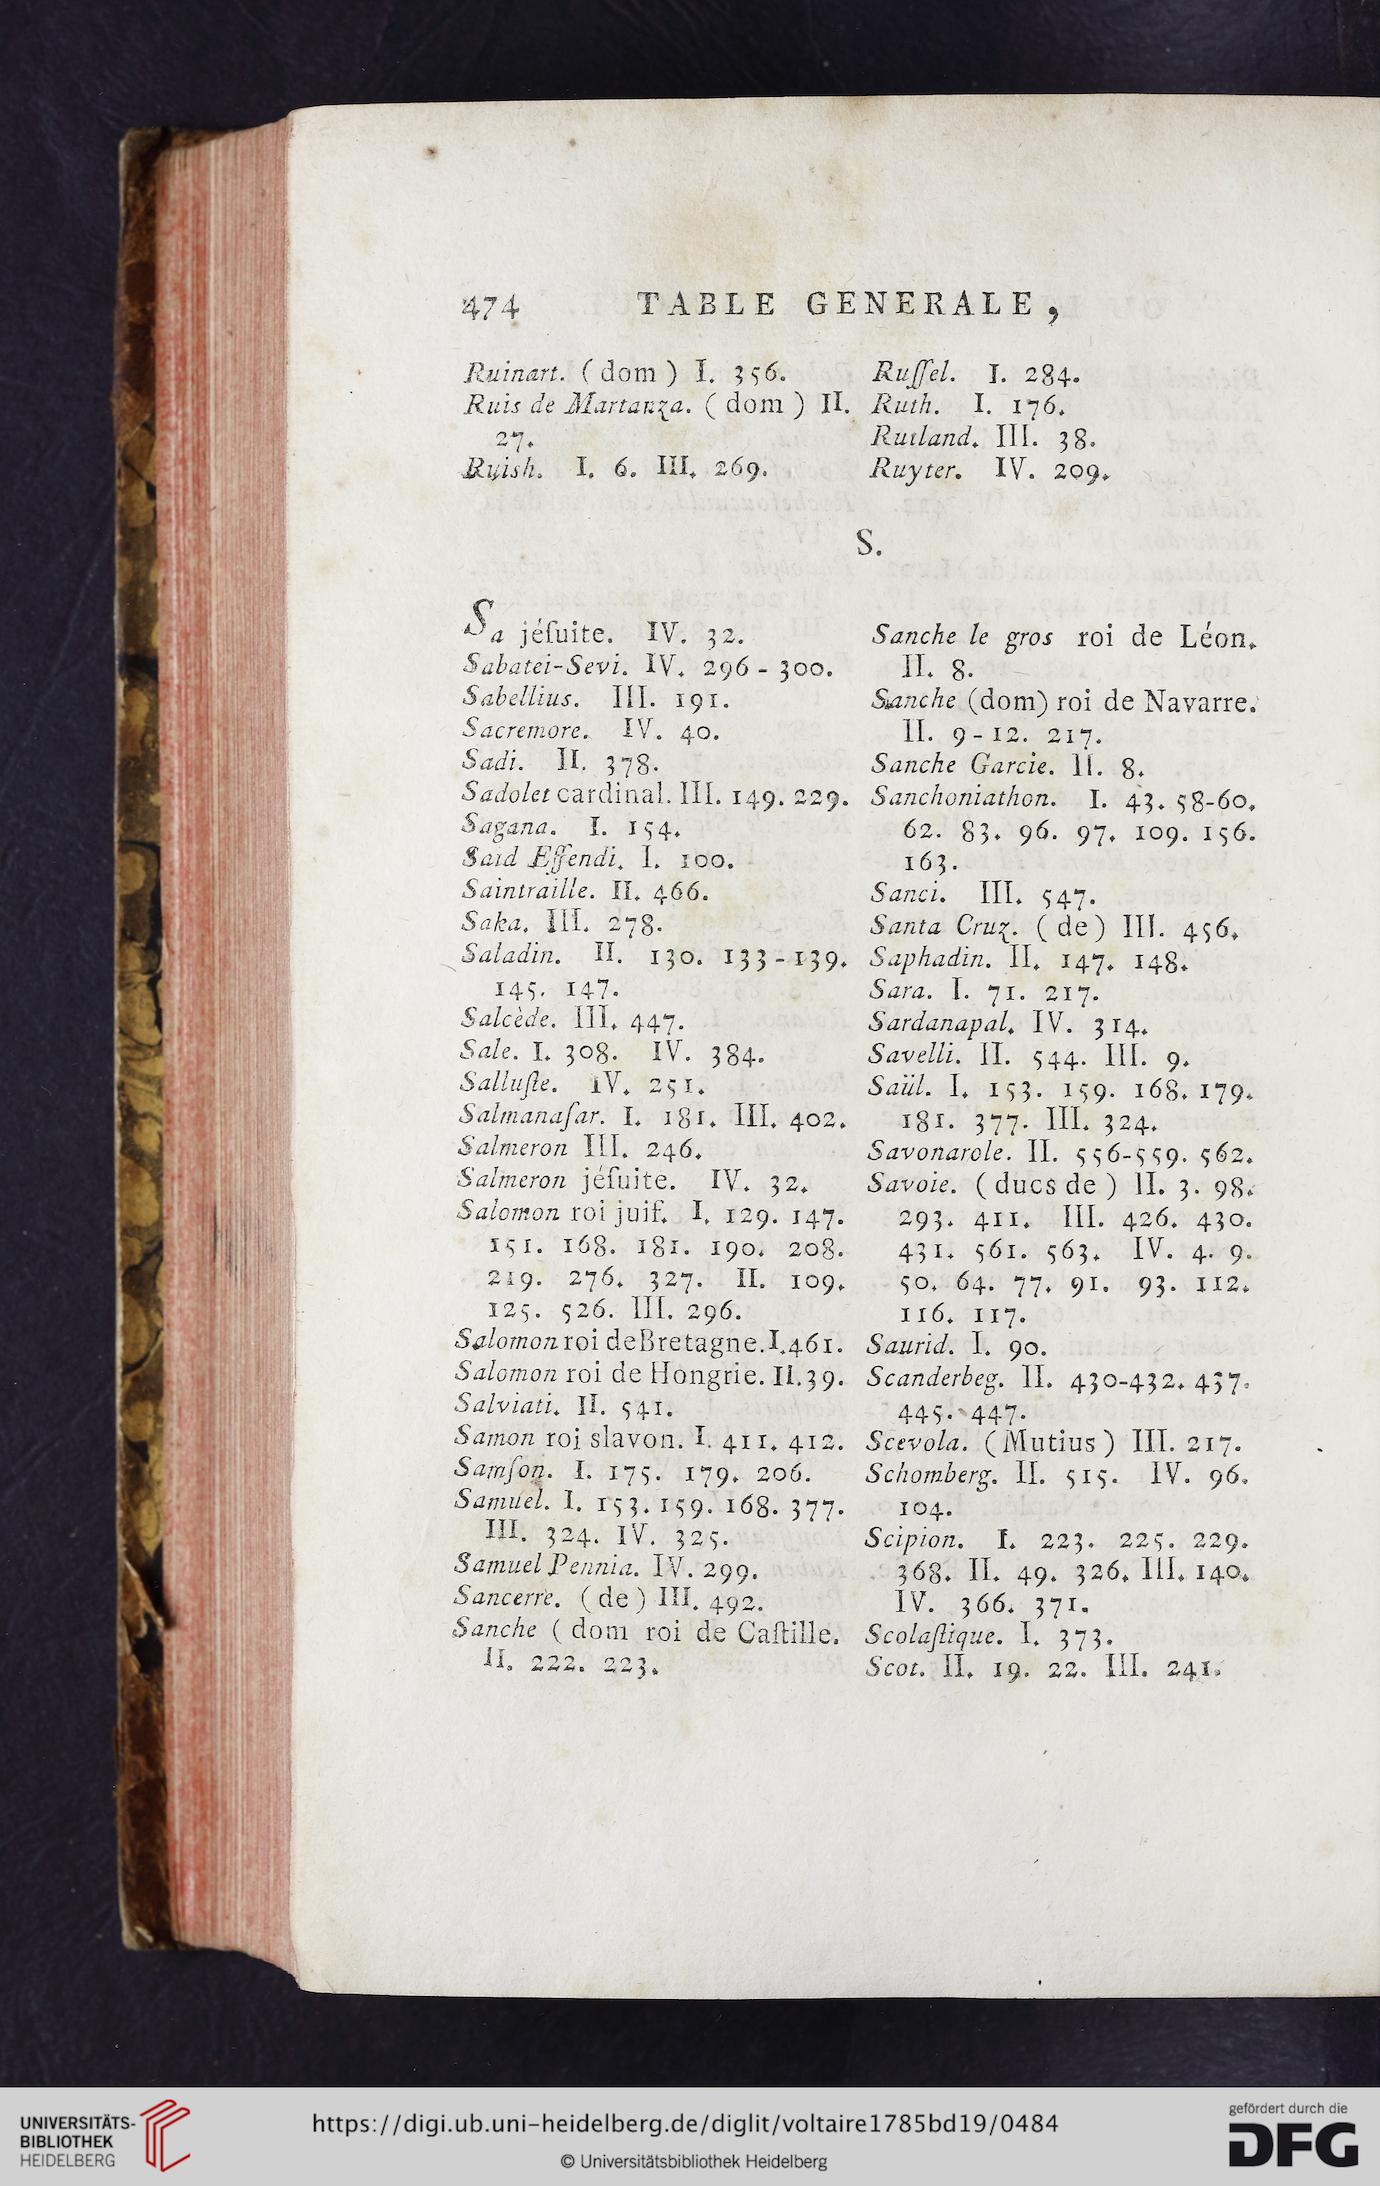 474 TABLE GENERALE,
Ruinart. (dom) I. 356.
Ruis de Martanza. (dom) II.
27.
Ruish. I. 6. III. 269.
Ruſſel. I. 284.
Ruth. I. 176.
Rutland. III. 38.
Ruyter. IV. 209.
S.
Sa jéſuite. IV. 32.
Sabatei-Sevi. IV. 296-300.
Sabellius. III. 191.
Sacremore. IV. 40.
Sadi. II. 378.
Sadolet cardinal. III. 149. 229.
Sagana. I. 154.
Said Effendi. I. 100.
Saintraille. II. 466.
Saka. III. 278.
Saladin. II. 130. 133-139.
145. 147.
Salcède. III. 447.
Sale. I. 308. IV. 384.
Salluſte. IV. 251.
Salmanaſar. I. 181. III. 402.
Salmeron III. 246.
Salmeron jéſuite. IV. 32.
Salomon roi juif. I. 129. 147.
151. 168. 181. 190. 208.
219. 276. 327. II. 109.
125. 526. III. 296.
Salomon roi de Bretagne. I. 461.
Salomon roi de Hongrie. II. 39.
Salviati. II. 541.
Samon roi slavon. I. 411. 412.
Samſon. I. 175. 179. 206.
Samuel. I. 153. 159. 168. 377.
III. 324. IV. 325.
Samuel Pennia. IV. 299.
Sancerre. (de) III. 492.
Sanche (dom roi de Caſtille.
II. 222. 223.
Sanche le gros roi de Léon.
II. 8.
Sanche (dom) roi de Navarre.
II. 9-12. 217.
Sanche Garcie. II. 8.
Sanchoniathon. I. 43. 58-60.
62. 83. 96. 97. 109. 156.
163.
Sanci. III. 547.
Santa Cruz. (de) III. 456.
Saphadin. II. 147. 148.
Sara. I. 71. 217.
Sardanapal. IV. 314.
Savelli. II. 544. III. 9.
Saül. I. 153. 159. 168. 179.
181. 377. III. 324.
Savonarole. II. 556-559. 562.
Savoie. (ducs de) II. 3. 98.
293. 411. III. 426. 430.
431. 561. 563. IV. 4. 9.
50. 64. 77. 91. 93. 112.
116. 117.
Saurid. I. 90.
Scanderbeg. II. 430-432. 437.
445. 447.
Scevola. (Mutius) III. 217.
Schomberg. II. 515. IV. 96.
104.
Scipion. I. 223. 225. 229.
368. II. 49. 326. III. 140.
IV. 366. 371.
Scolaſtique. I. 373.
Scot. II. 19. 22. III. 241.
UNIVERSITÄTS-
BIBLIOTHEK
HEIDELBERG
https://digi.ub.uni-heidelberg.de/diglit/voltaire1785bd19/0484
© Universitätsbibliothek Heidelberg
gefördert durch die
DFG